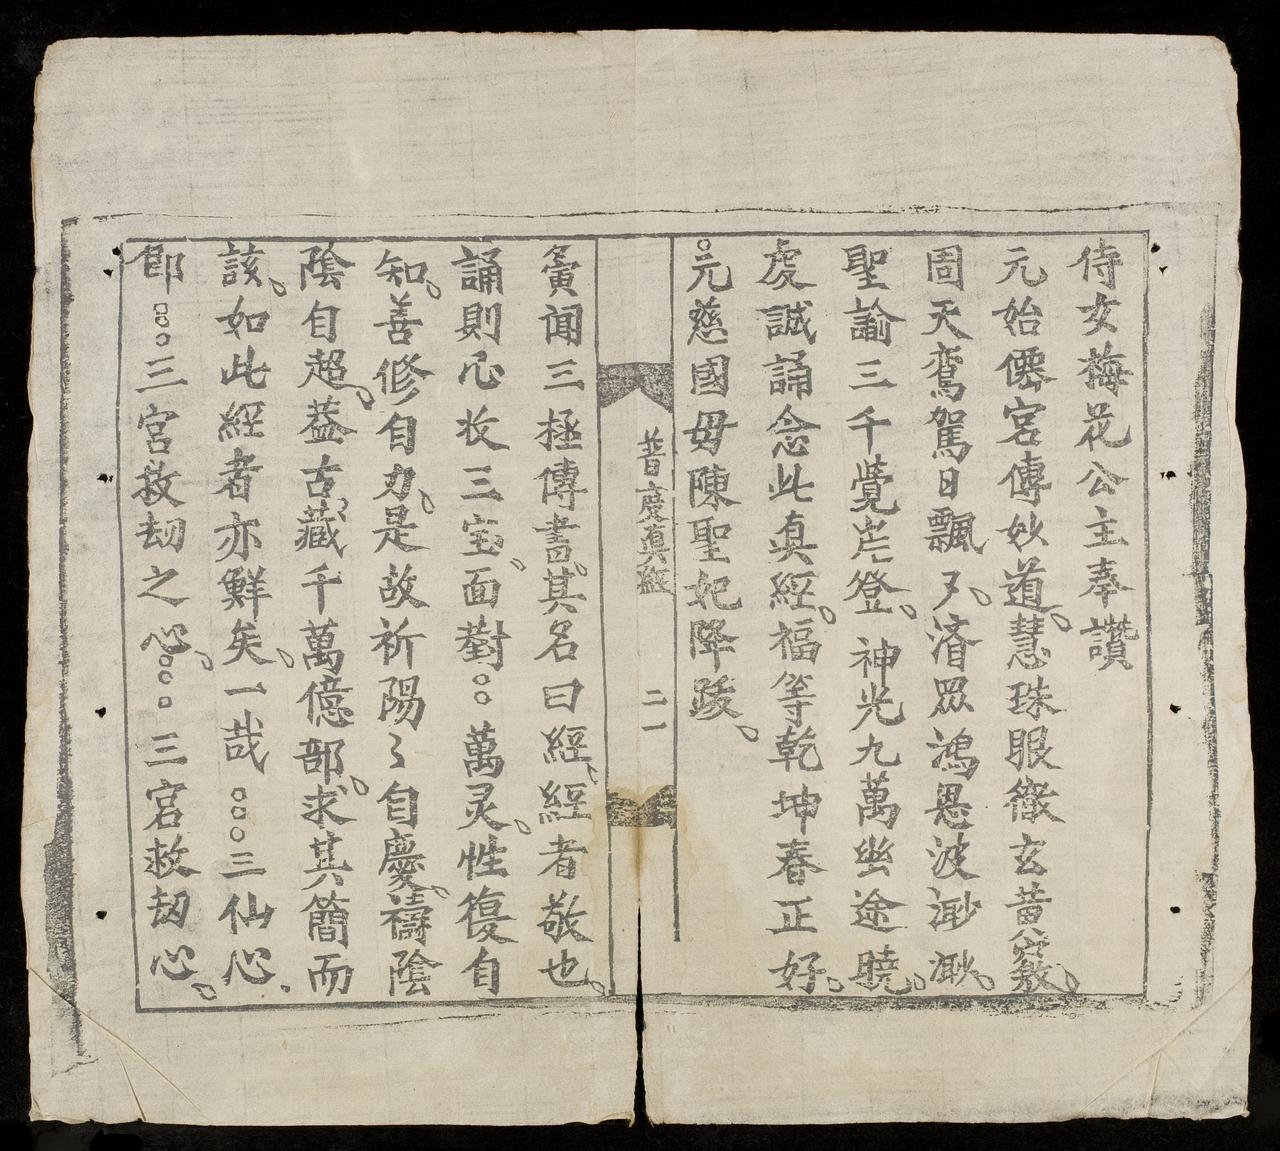 侍女梅花公主奉讚
元始僊宮傳妙道慧珠眼徹玄黃竅
周天鸞駕日飄又濟眾鴻恩波渺渺
聖諭三千覺岸登神光九萬幽途曉
虔誠誦念此真經福等乾坤春正好
。元慈國母陳聖妃降跋
普度真經
二一
夤闻三極傳書其名曰經經者敬也
誦則心收三宝面對。。萬灵性復自
知善修自力是故祈陽〻自慶禱陰
陰自超蓋古藏千萬億部求其簡而
該如此經者亦鮮矣一哉。。。三仙心
即。。。三宮救劫之心。。。三宮救劫心